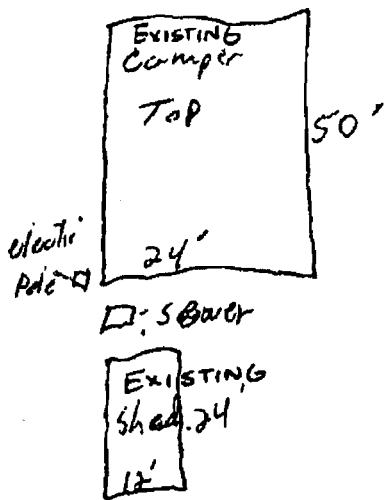 EXISTING
Camper
Top
50'
24'
electric
Pole
Sewer
EXISTING
Shed. 24'
12'